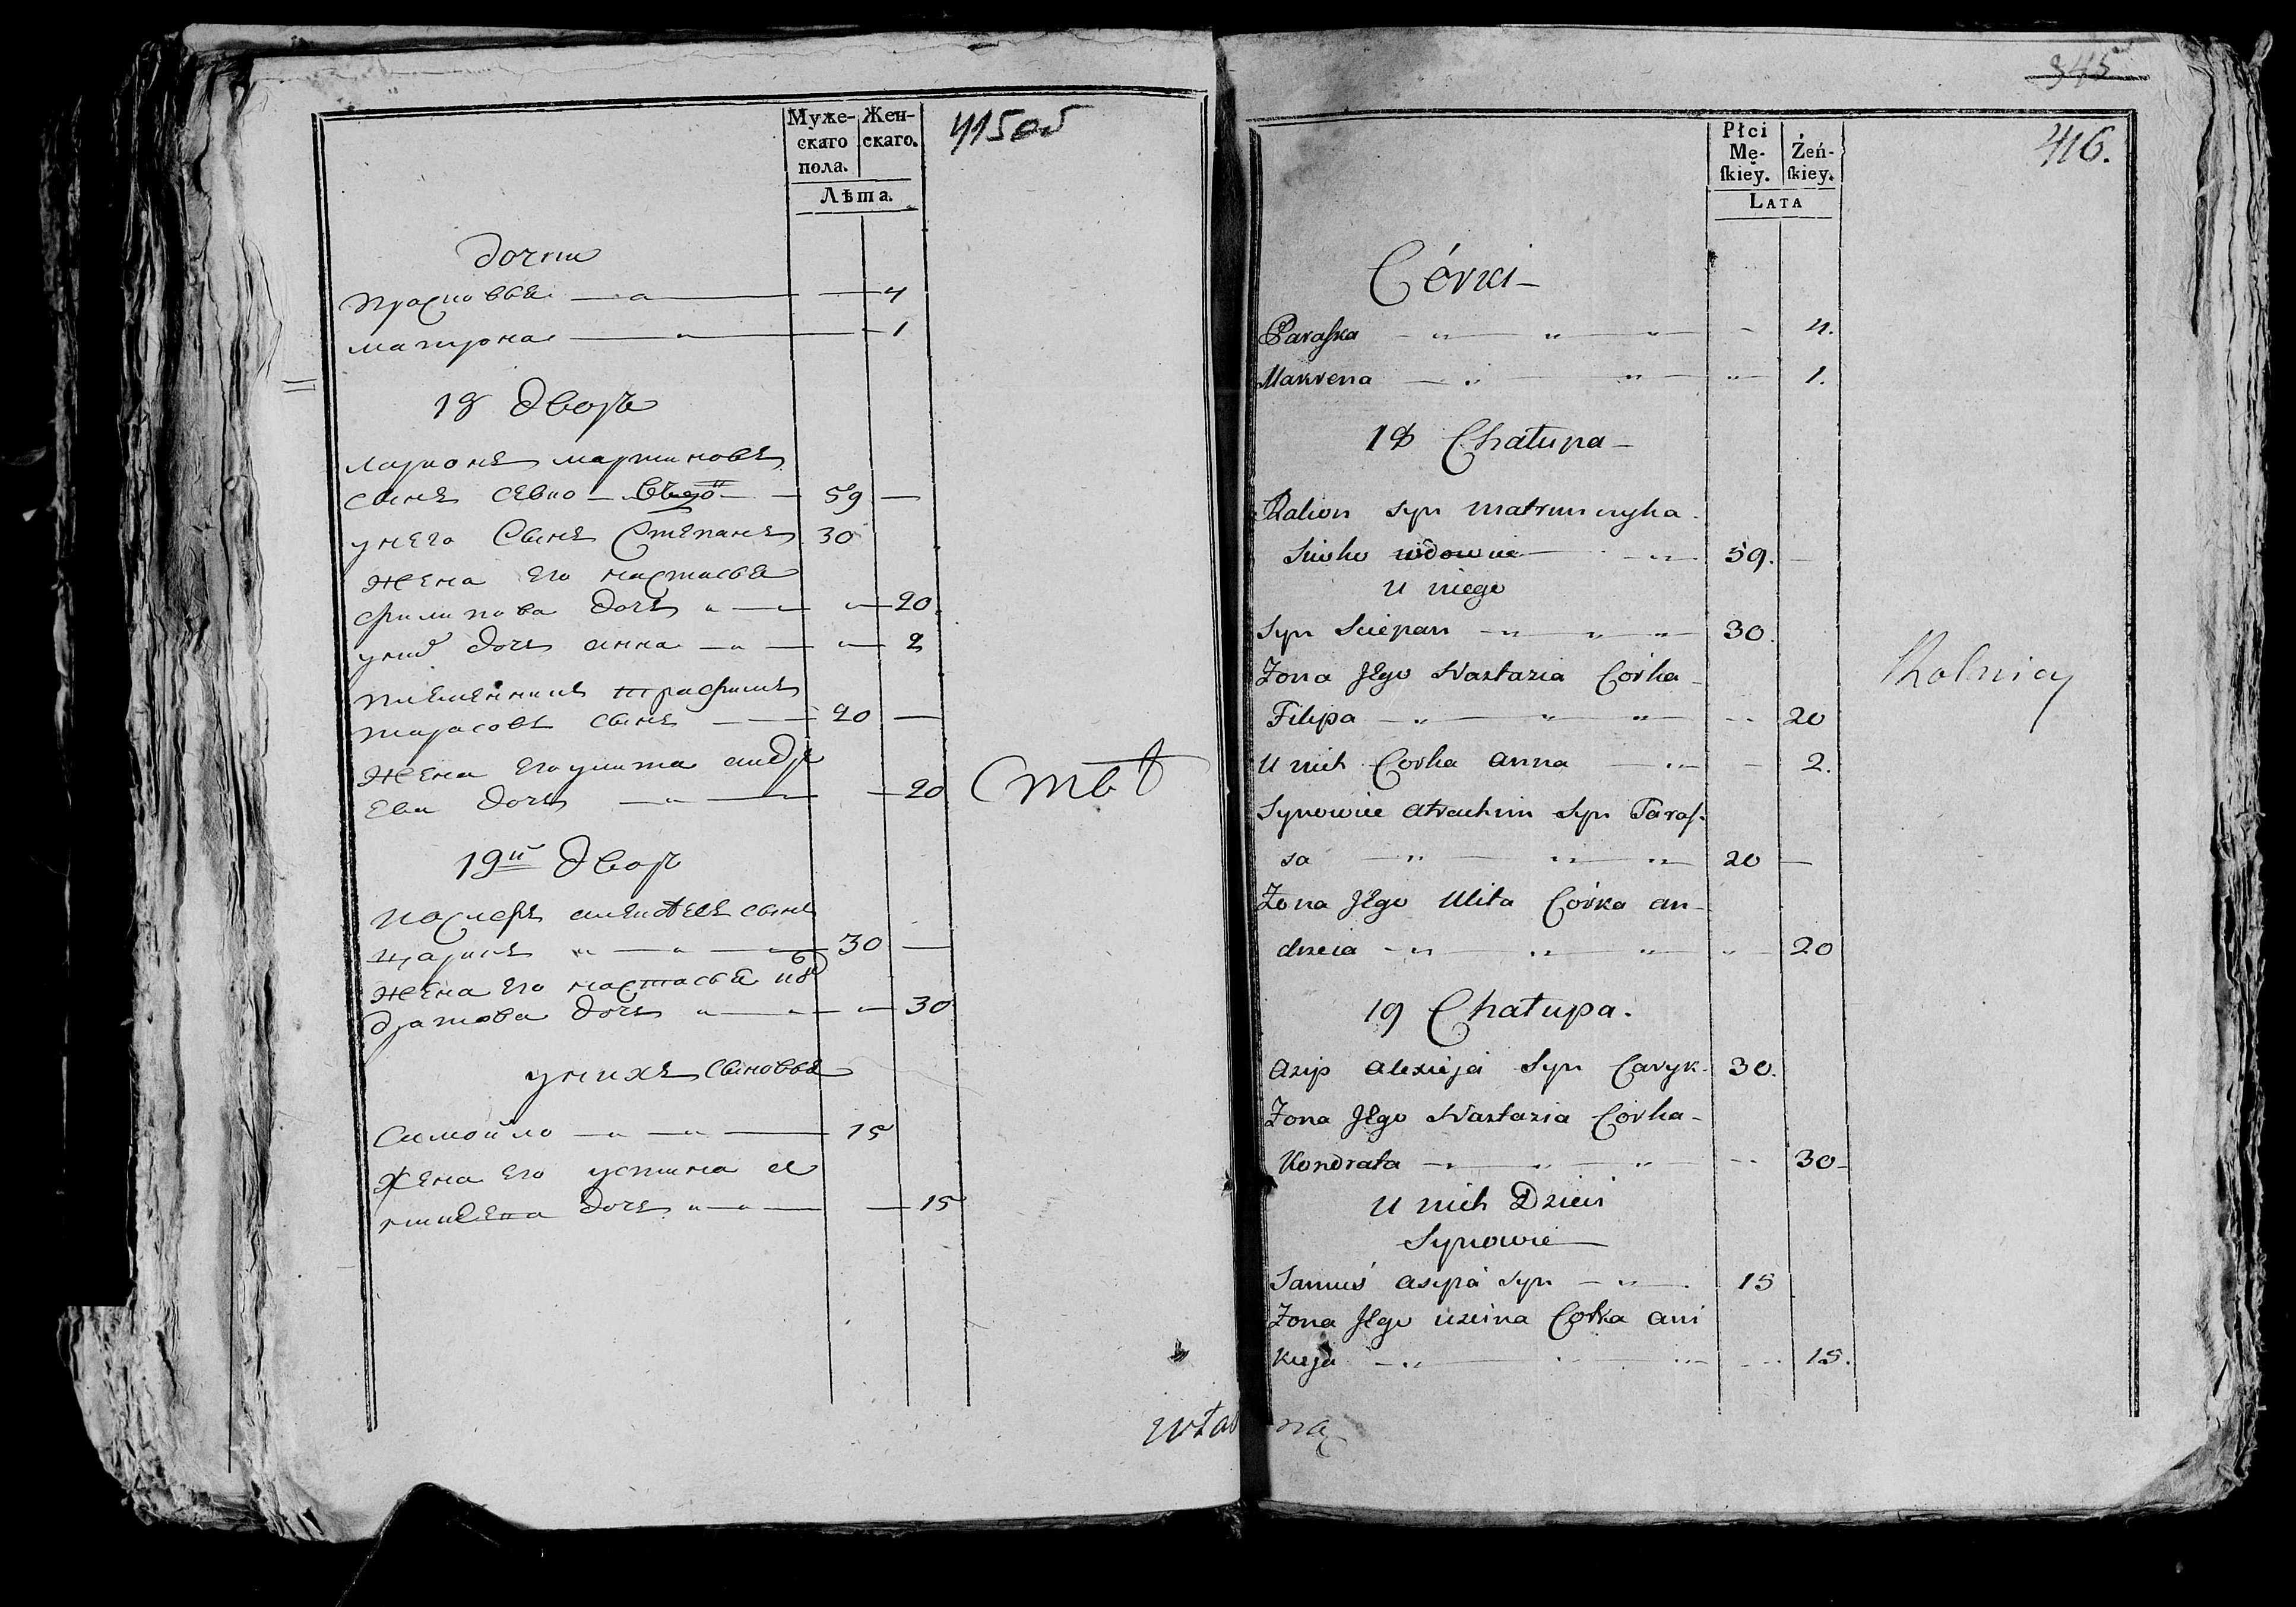 Муже- Жен-
скаго скаго.
пола.
Лѣта.
415 об
дочки
прасковья 4
матрона 1
18 дворъ
ларионъ мартиновъ
сынъ севко 59
унего Сынъ Степанъ 30
жена его настасья
филипова дочь 20
уних дочь анна 2
племенникъ трафимъ
тарасовъ сынъ 20
жена его улита андре
ева дочь 20
Ств
19й дворъ
алексеевъ сынъ
царикъ 30
жена его настасья кон
дратова дочь 30
унихъ сыновья
Самойло 15
жена его устина а
никеева дочь 15
własną
345
416.
Płci
Mę- Żeń-
ſkiey. ſkiey.
LATA
Córki
Paraſka 4.
Makrena 1.
18 Chałupa
Ralion Syn Matruncyka
Siewko wdowiec 59.
U niego
Syn Sciepan 30.
Żona Jego Nastazia Córka
Filipa 20
U nich Corka Anna 2.
Synowiec Atrachim Syn Taraſ-
sa 20
Żona Jego Ulita Córka An-
drzeia 20
Rolnicy
19 Chałupa.
Asip Alexieja Syn Caryk 30.
Żona Jego Nastazia Córka
Kondrata 30
U nich Dzieci
Synowie
Samuś Asipa Syn 15
Żona Jego Uscina Corka Ani
Kieja 15.